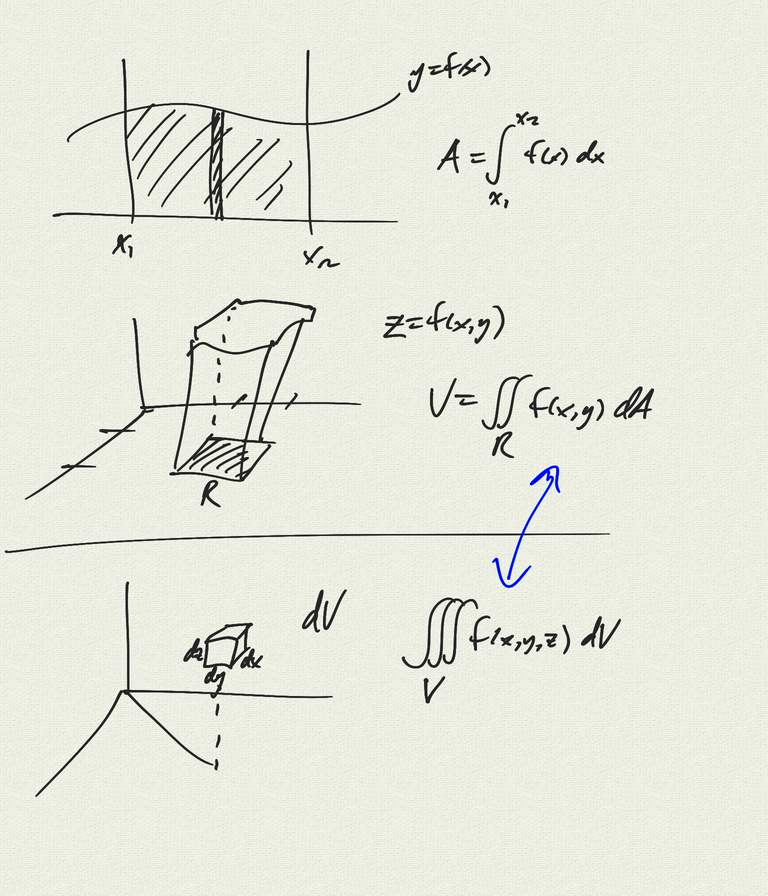 y=f(x)
A = ∫_{x₁}^{x₂} f(x) dx
x₁ x₂
z=f(x,y)
V= ∬_R f(x,y) dA
R
dV
dz dy dx
∭_V f(x,y,z) dV